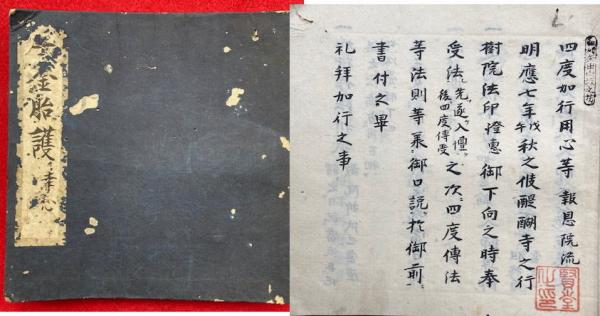 胎護
四度加行用心等 報恩院流
明應七年戊午秋之候醍醐寺之行
樹院法印澄惠御下向之時奉
受法先遂入壇後四度傳受之次四度傳法
等法則等承御口説於御前
書付之畢
礼拝加行之事